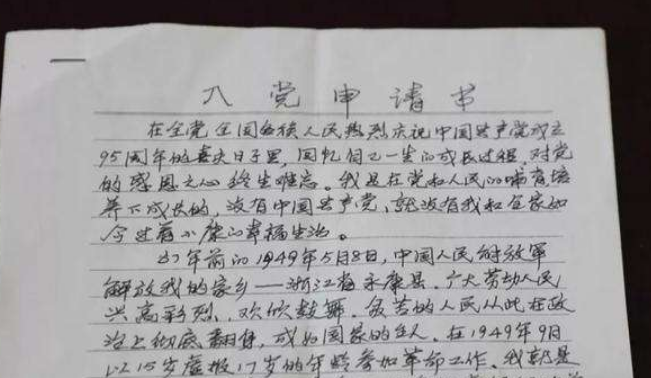 入党申请书
在全党全国各族人民热烈庆祝中国共产党成立
95周年的喜庆日子里,回忆自己一生的成长过程,对党
的感恩之心终生难忘。我是在党和人民的哺育培
养下成长的,没有中国共产党、就没有我和全家如
今过着小康的幸福生活。
67年前的1949年5月8日,中国人民解放军
解放我的家乡——浙江省永康县。广大劳动人民
兴高彩烈、欢欣鼓舞。贫苦的人民从此在政
治上彻底翻身,成为国家的主人。在1949年9月
以15岁虚报17岁的年龄参加革命工作。我就是